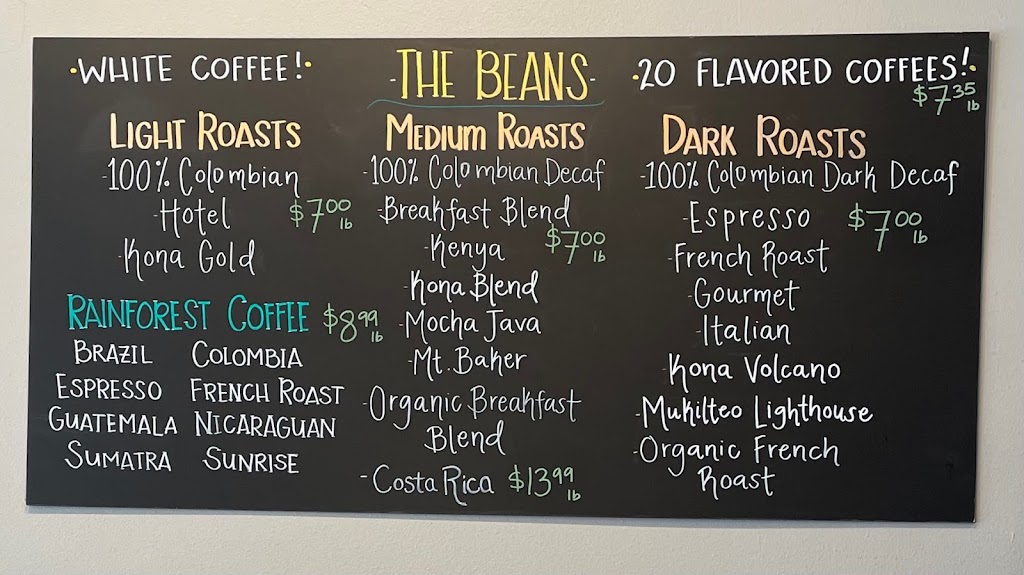 ·WHITE COFFEE!·
LIGHT ROASTS
-100% Colombian
-Hotel $7.00 lb
-Kona Gold
RAINFOREST COFFEE $8.99 lb
BRAZIL COLOMBIA
ESPRESSO FRENCH ROAST
GUATEMALA NICARAGUAN
SUMATRA SUNRISE
-THE BEANS-
MEDIUM ROASTS
-100% Colombian Decaf
-Breakfast Blend
-Kenya $7.00 lb
-Kona Blend
-Mocha Java
-Mt. Baker
-Organic Breakfast
Blend
-Costa Rica $13.99 lb
·20 FLAVORED COFFEES!·
$7.35 lb
DARK ROASTS
-100% Colombian Dark Decaf
-Espresso $7.00 lb
-French Roast
-Gourmet
-Italian
-Kona Volcano
-Mukilteo Lighthouse
-Organic French
Roast